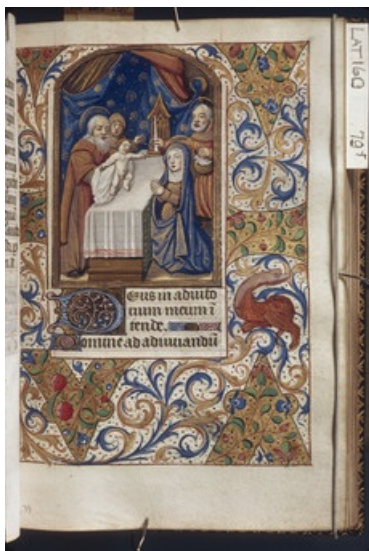 LAT 160
70r
Deus in adiuto
rium meum ī
tende.
Domine ad adiuuandū